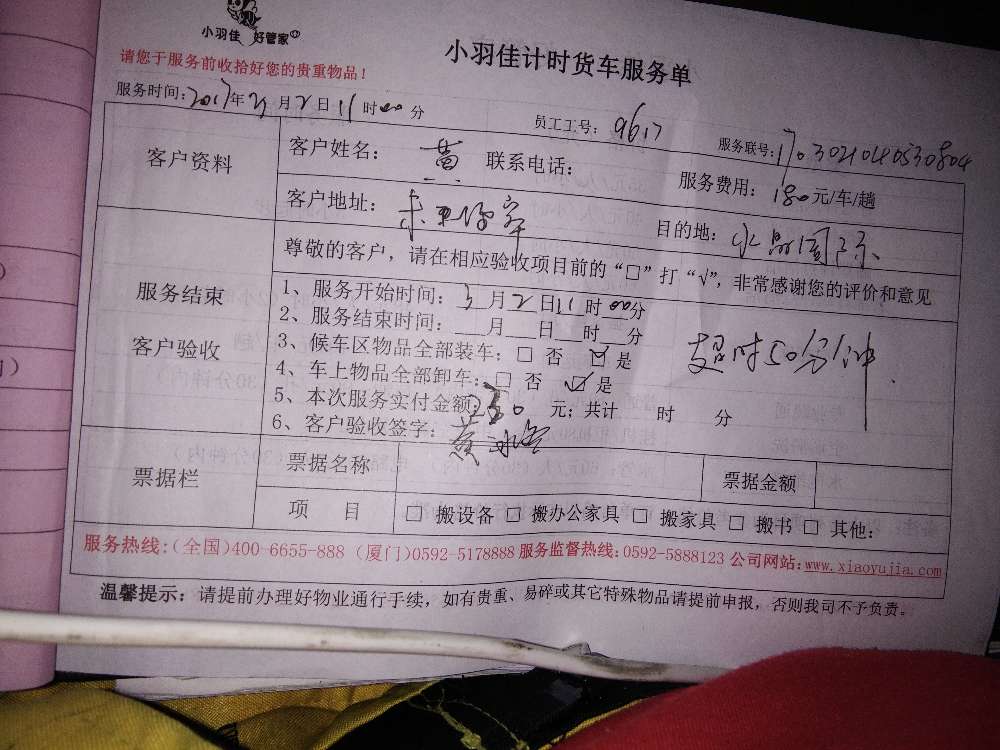 小羽佳 好管家
小羽佳计时货车服务单
请您于服务前收拾好您的贵重物品！
服务时间：2017年3月2日11时00分 员工工号：9617 服务联号：
客户资料 客户姓名：黄 联系电话： 服务费用：180元/车/趟
客户地址： 目的地：
尊敬的客户，请在相应验收项目前的“□”打“√”，非常感谢您的评价和意见
服务结束
客户验收
1、服务开始时间：3月2日11时00分
2、服务结束时间：__月__日__时__分
3、候车区物品全部装车：□ 否 ☑ 是
4、车上物品全部卸车：□ 否 ☑ 是
5、本次服务实付金额： 元；共计 时 分
6、客户验收签字：黄
超时50分钟
票据栏 票据名称 票据金额
项 目 □ 搬设备 □ 搬办公家具 □ 搬家具 □ 搬书 □ 其他：
服务热线：（全国）400-6655-888 （厦门）0592-5178888 服务监督热线：0592-5888123 公司网站：www.xiaoyujia.com
温馨提示：请提前办理好物业通行手续，如有贵重、易碎或其它特殊物品请提前申报，否则我司不予负责。